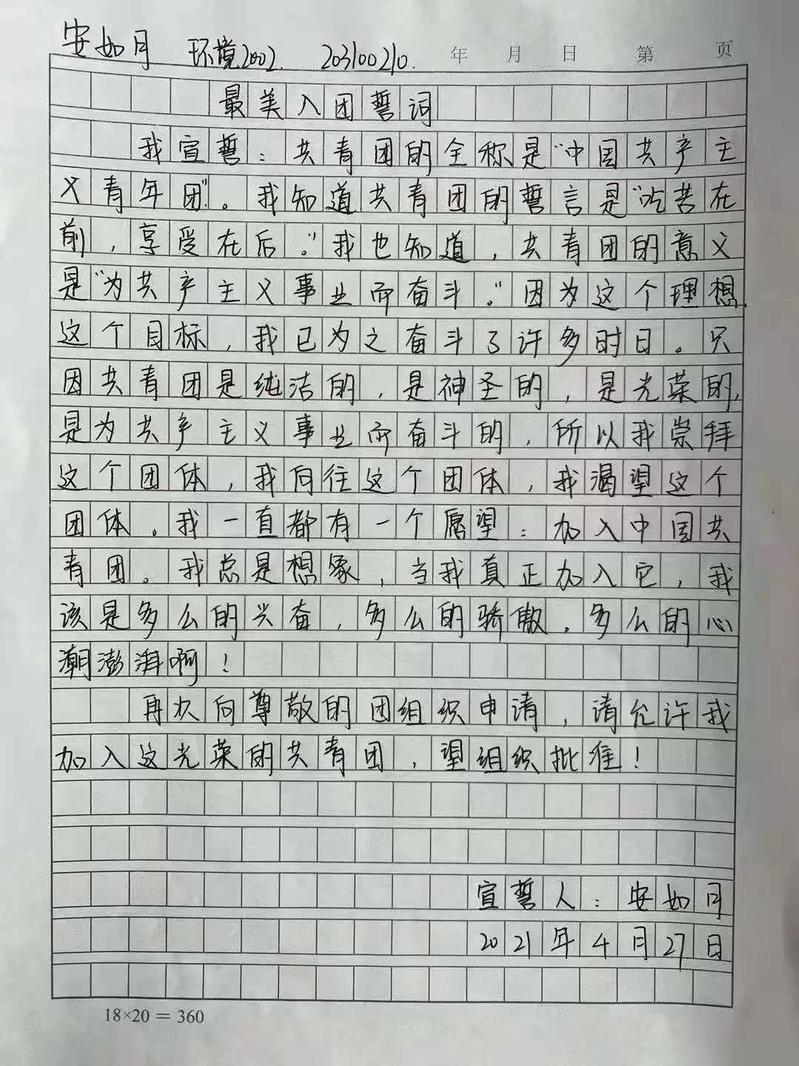 安如月 环境2002. 203100210. 年 月 日 第 页
最美入团誓词
我宣誓：共青团的全称是"中国共产主
义青年团"。我知道共青团的誓言是"吃苦在
前，享受在后。"我也知道，共青团的意义
是"为共产主义事业而奋斗。"因为这个理想，
这个目标，我已为之奋斗了许多时日。只
因共青团是纯洁的，是神圣的，是光荣的，
是为共产主义事业而奋斗的，所以我崇拜
这个团体，我向往这个团体，我渴望这个
团体。我一直都有一个愿望：加入中国共
青团。我总是想象，当我真正加入它，我
该是多么的兴奋，多么的骄傲，多么的心
潮澎湃啊！
再次向尊敬的团组织申请，请允许我
加入这光荣的共青团，望组织批准！
宣誓人：安如月
2021年4月27日
18×20＝360